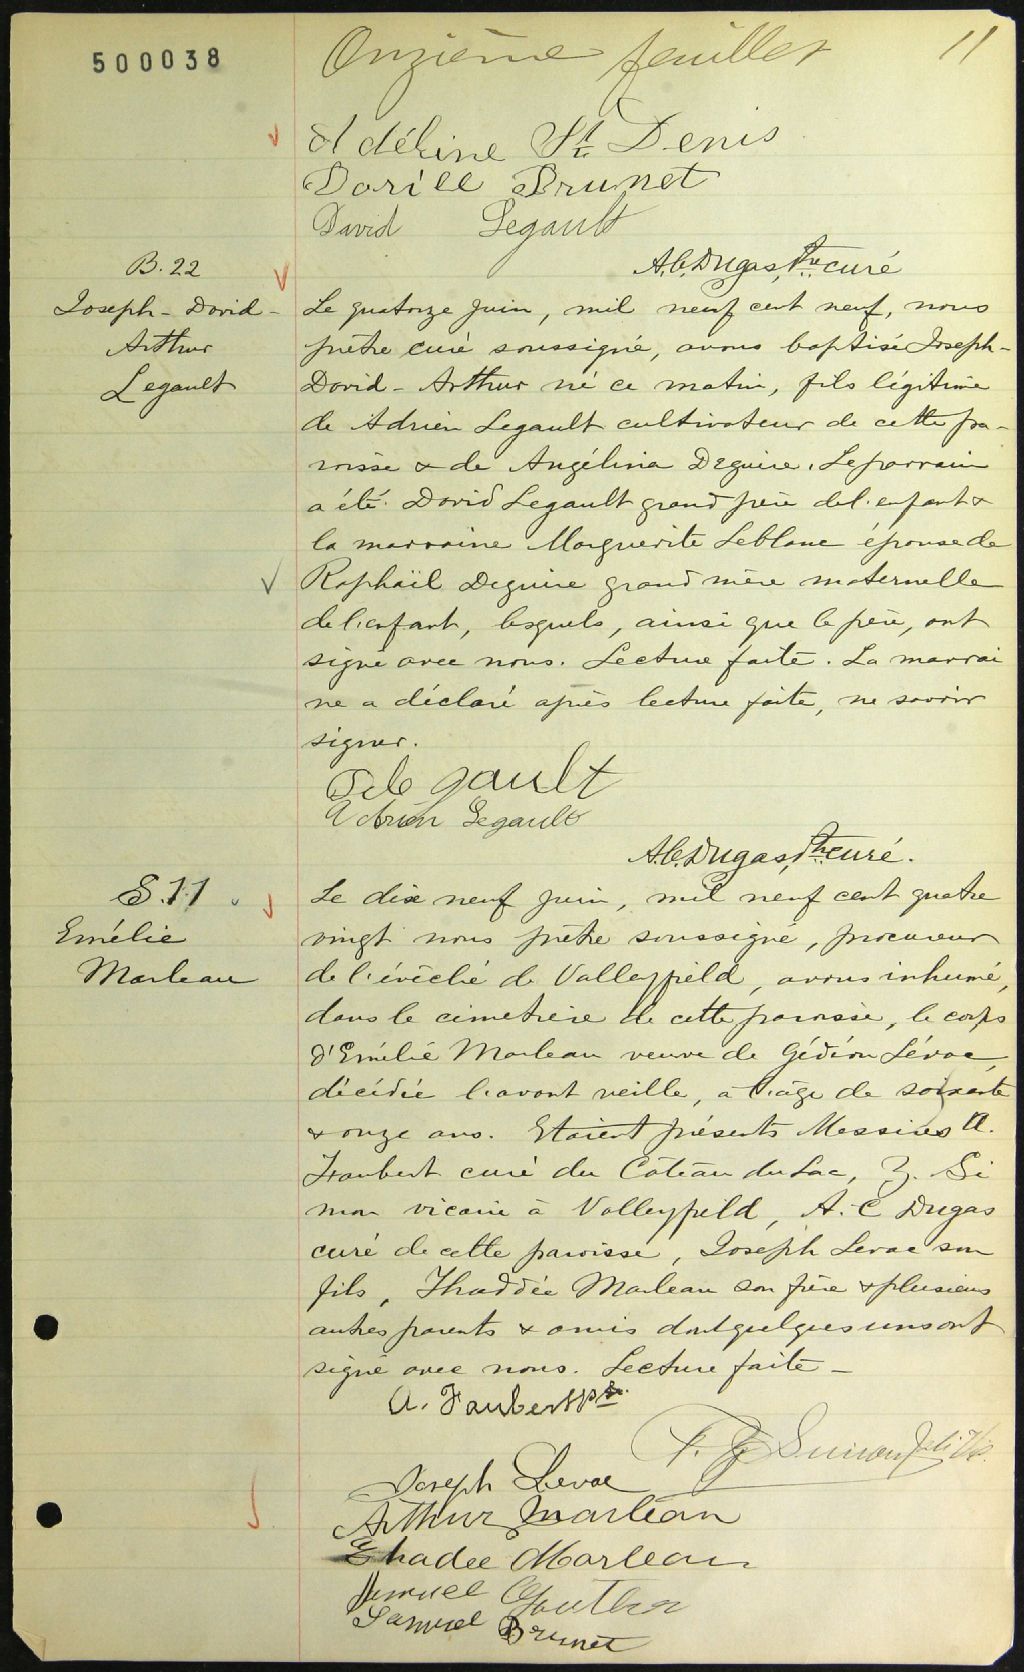 500038
Onzième feuillet 11
Adéline St Denis
Dorill Brunet
David Legault
A.C. Dugas, Ptre curé
B. 22
Joseph-David-
Arthur
Legault
Le quatorze juin, mil neuf cent neuf, nous
prêtre curé soussigné, avons baptisé Joseph-
David-Arthur né ce matin, fils légitime
de Adrien Legault cultivateur de cette pa-
roisse & de Angélina Deguire. Le parrain
a été David Legault grand père de l'enfant &
la marraine Marguerite Leblanc épouse de
Raphaël Deguire grand mère maternelle
de l'enfant, lesquels, ainsi que le père, ont
signé avec nous. Lecture faite. La marrai
ne a déclaré après lecture faite, ne savoir
signer.
gault
Adrien Legault
A.C. Dugas, Ptre curé.
S. 11
Emélie
Marleau
Le dix neuf juin, mil neuf cent quatre
vingt nous prêtre soussigné, procureur
de l'évêché de Valleyfield, avons inhumé,
dans le cimetière de cette paroisse, le corps
d'Emélie Marleau veuve de Gédéon Lévac,
décédée l'avant veille, a l'âge de soixante
& onze ans. Etaient présents Messires A.
Faubert curé du Côteau du Lac, Z. Si
mon vicaire à Valleyfield, A. C Dugas
curé de cette paroisse, Joseph Levac son
fils, Thaddée Marleau son frère & plusieurs
autres parents & amis dont quelques uns ont
signé avec nous. Lecture faite —
A. Faubert Ptre.
Simon
Joseph Levac
Arthur Marleau
Thadee Marleau
Samuel Brunet